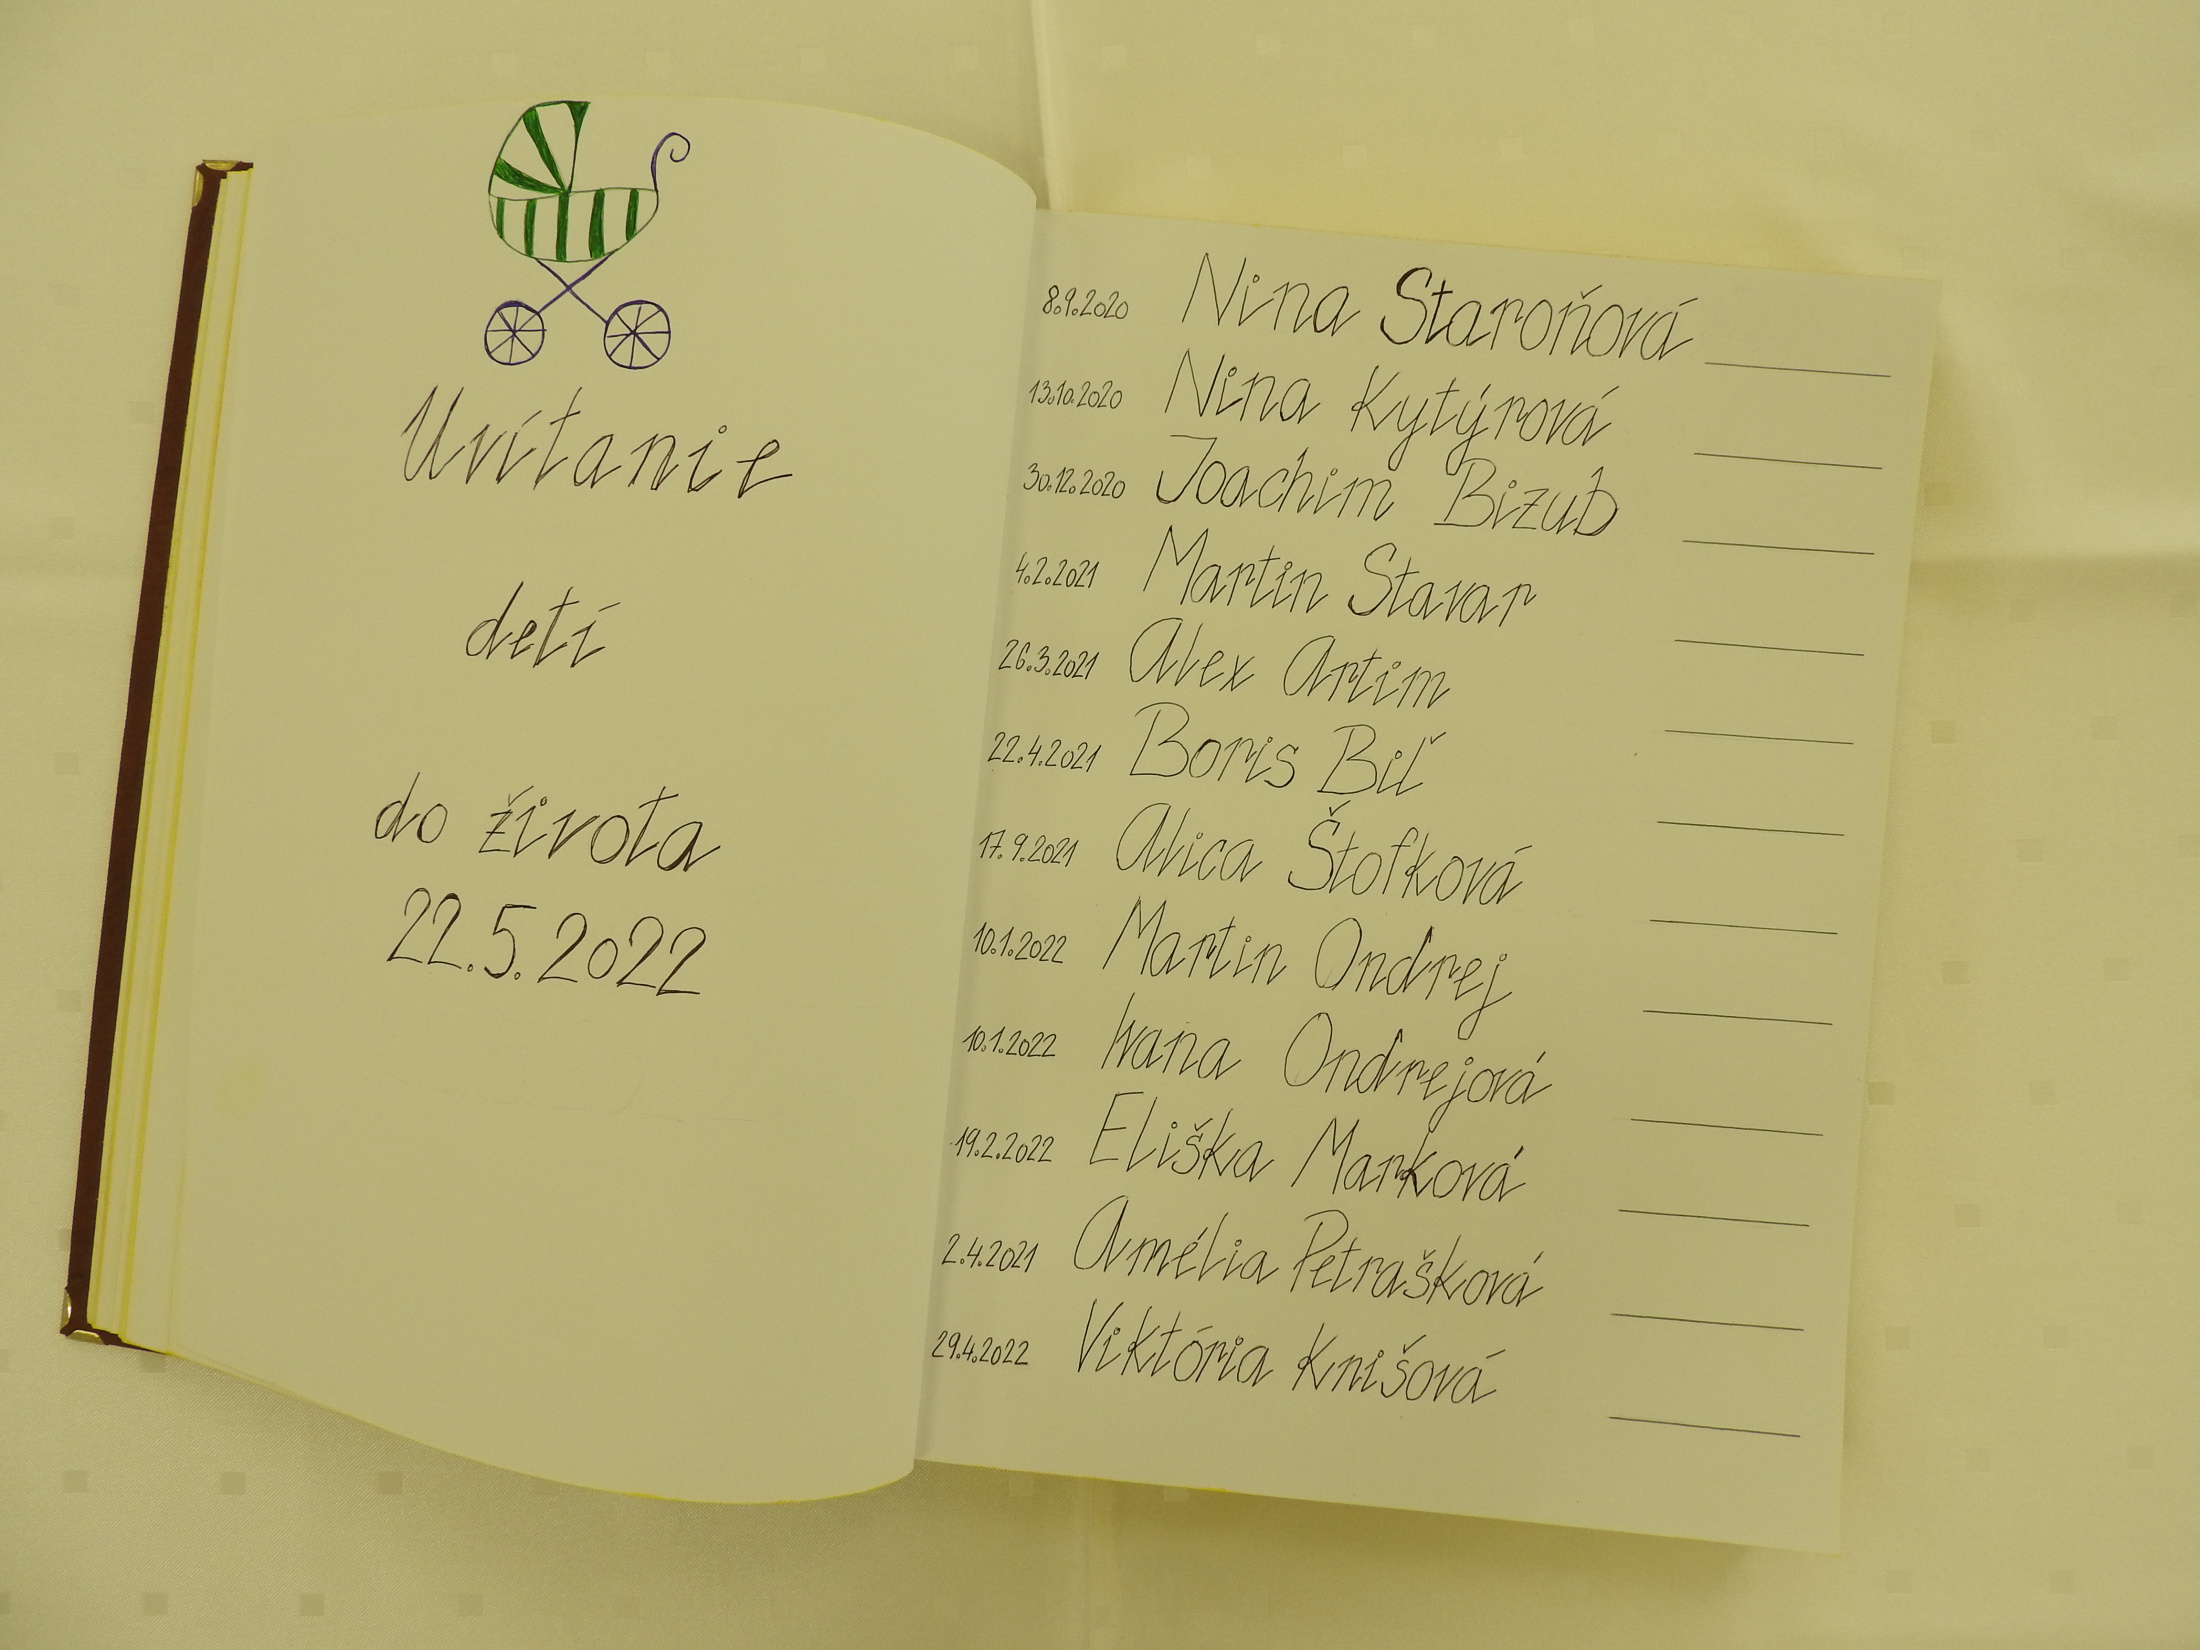 Uvítanie
detí
do života
22.5.2022
8.9.2020 Nina Staroňová
13.10.2020 Nina Kytýrová
30.12.2020 Joachim Bizub
4.2.2021 Martin Stavar
26.3.2021 Alex Artim
22.4.2021 Boris Biľ
17.9.2021 Alica Štofková
10.1.2022 Martin Ondrej
10.1.2022 Ivana Ondrejová
19.2.2022 Eliška Marková
2.4.2021 Amélia Petrašková
29.4.2022 Viktória Knišová